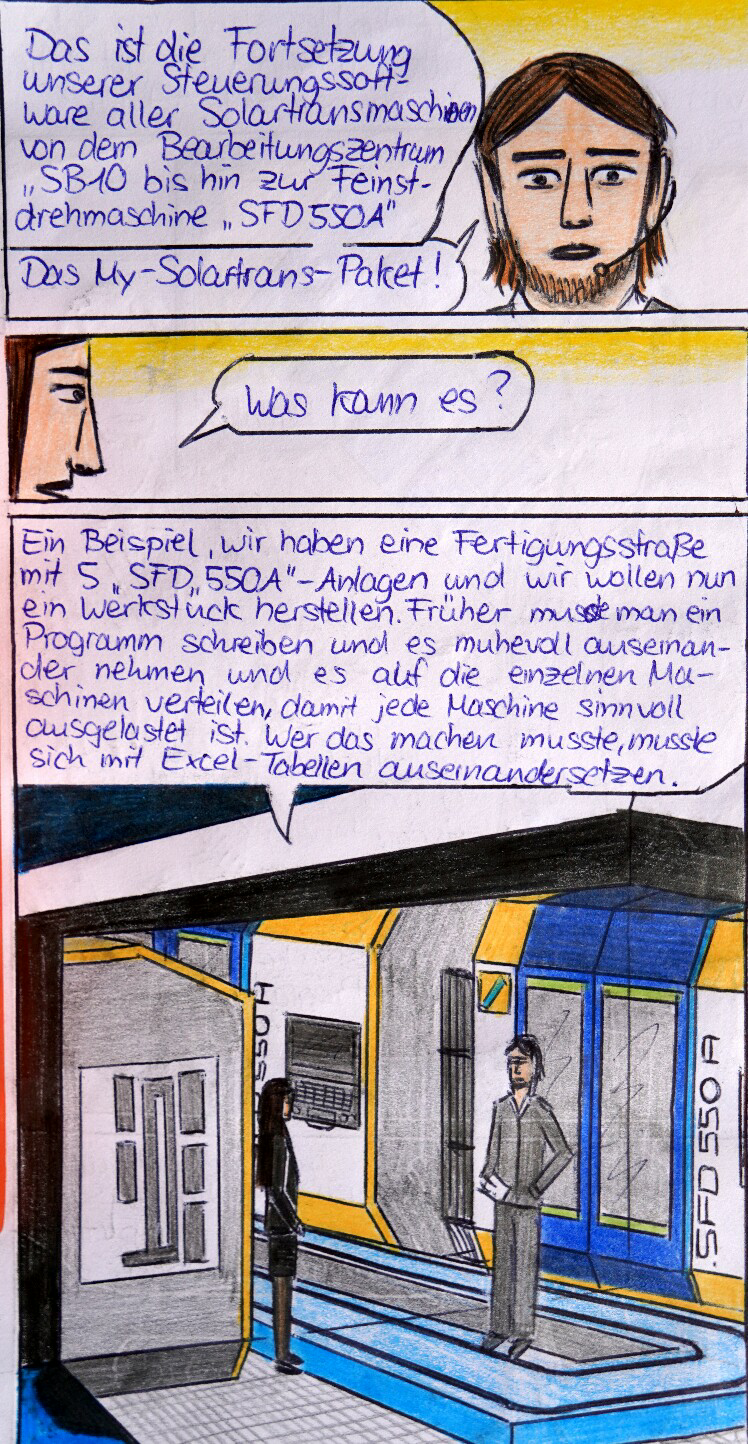 Das ist die Fortsetzung
unserer Steuerungssoft-
ware aller Solartransmaschinen
von dem Bearbeitungszentrum
„SB10 bis hin zur Feinst-
drehmaschine „SFD550A"
Das My-Solartrans-Paket!
Was kann es?
Ein Beispiel, wir haben eine Fertigungsstraße
mit 5 „SFD„550A"-Anlagen und wir wollen nun
ein Werkstück herstellen. Früher musste man ein
Programm schreiben und es muhevoll auseinan-
der nehmen und es auf die einzelnen Ma-
schinen verteilen, damit jede Maschine sinnvoll
ausgelastet ist. Wer das machen musste, musste
sich mit Excel-Tabellen auseinandersetzen.
550A
SFD 550 A